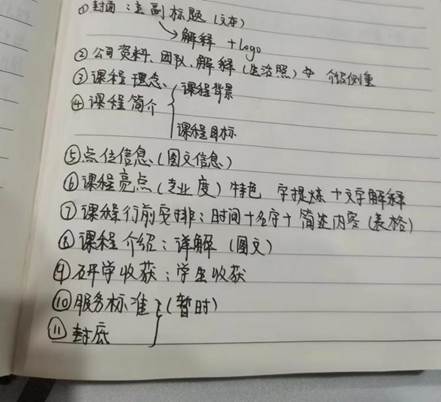 ①封面:主副标题(文本)
→解释+logo
②公司资料、团队、解释(生活照)
③课程理念、
④课程简介{课程背景
课程目标
⑤点位信息(图文信息)
⑥课程亮点(专业度)特色 字提炼+文字解释
⑦课程行前安排:时间+名字+简述内容(表格)
⑧课程介绍:详解(图文)
⑨研学收获:学生收获
⑩服务标准}(暂时)
⑪封底